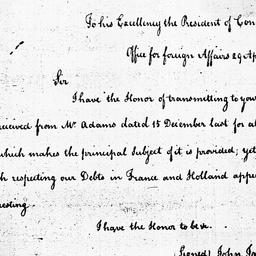 To his Excellency the President of Con
Office for foreign Affairs 29 Ap
Sir
I have the Honor of transmitting to you
received from Mr Adams dated 15 December last for al
which makes the principal Subject of it is provided; yet
h respecting our Debts in France and Holland appe
resting.
I have the Honor to be &c.
Signed John Ja